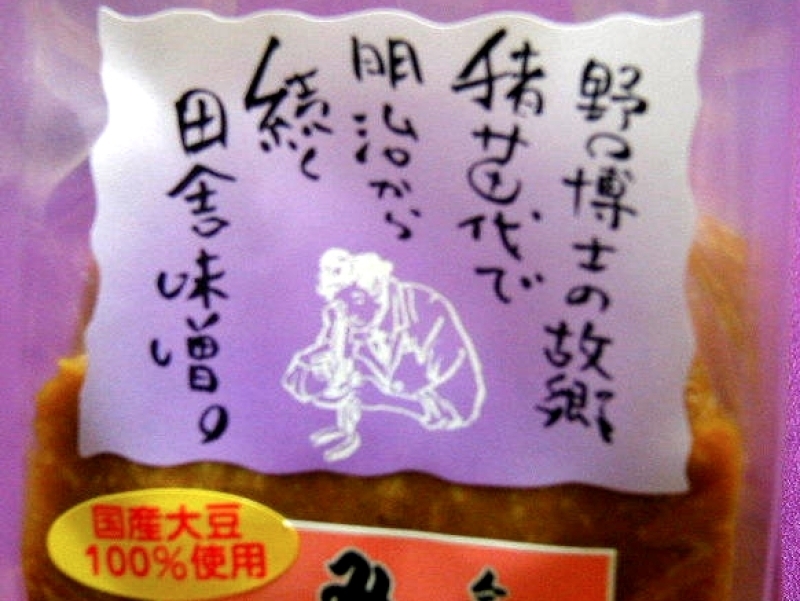 野口博士の故郷
猪苗代で
明治から
続く
田舎味噌の
国産大豆
100%使用
み